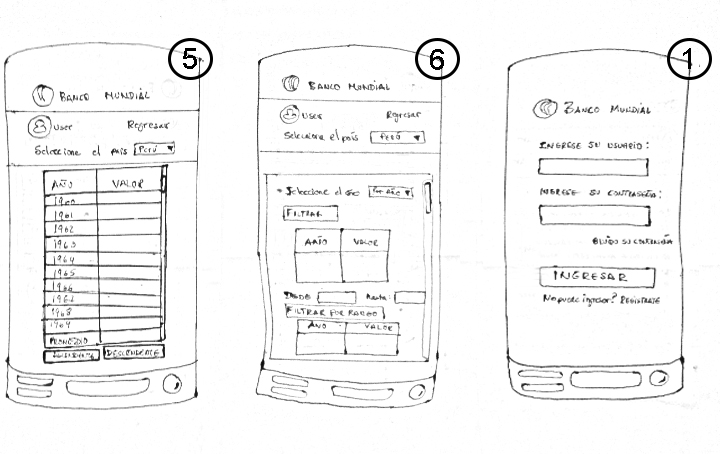 5
BANCO MUNDIAL
User Regresar
Seleccione el país Perú
AÑO VALOR
1960
1961
1962
1963
1964
1965
1966
1967
1968
1969
PROMEDIO
DESCENDENTE
6
BANCO MUNDIAL
User Regresar
Seleccione el país PERÚ
Seleccione el año Por AÑO
FILTRAR
AÑO VALOR
DESDE Hasta:
FILTRAR POR RANGO
AÑO VALOR
1
BANCO MUNDIAL
INGRESE SU USUARIO:
INGRESE SU CONTRASEÑA:
OLVIDO SU CONTRASEÑA
INGRESAR
No puede ingresar? REGISTRATE